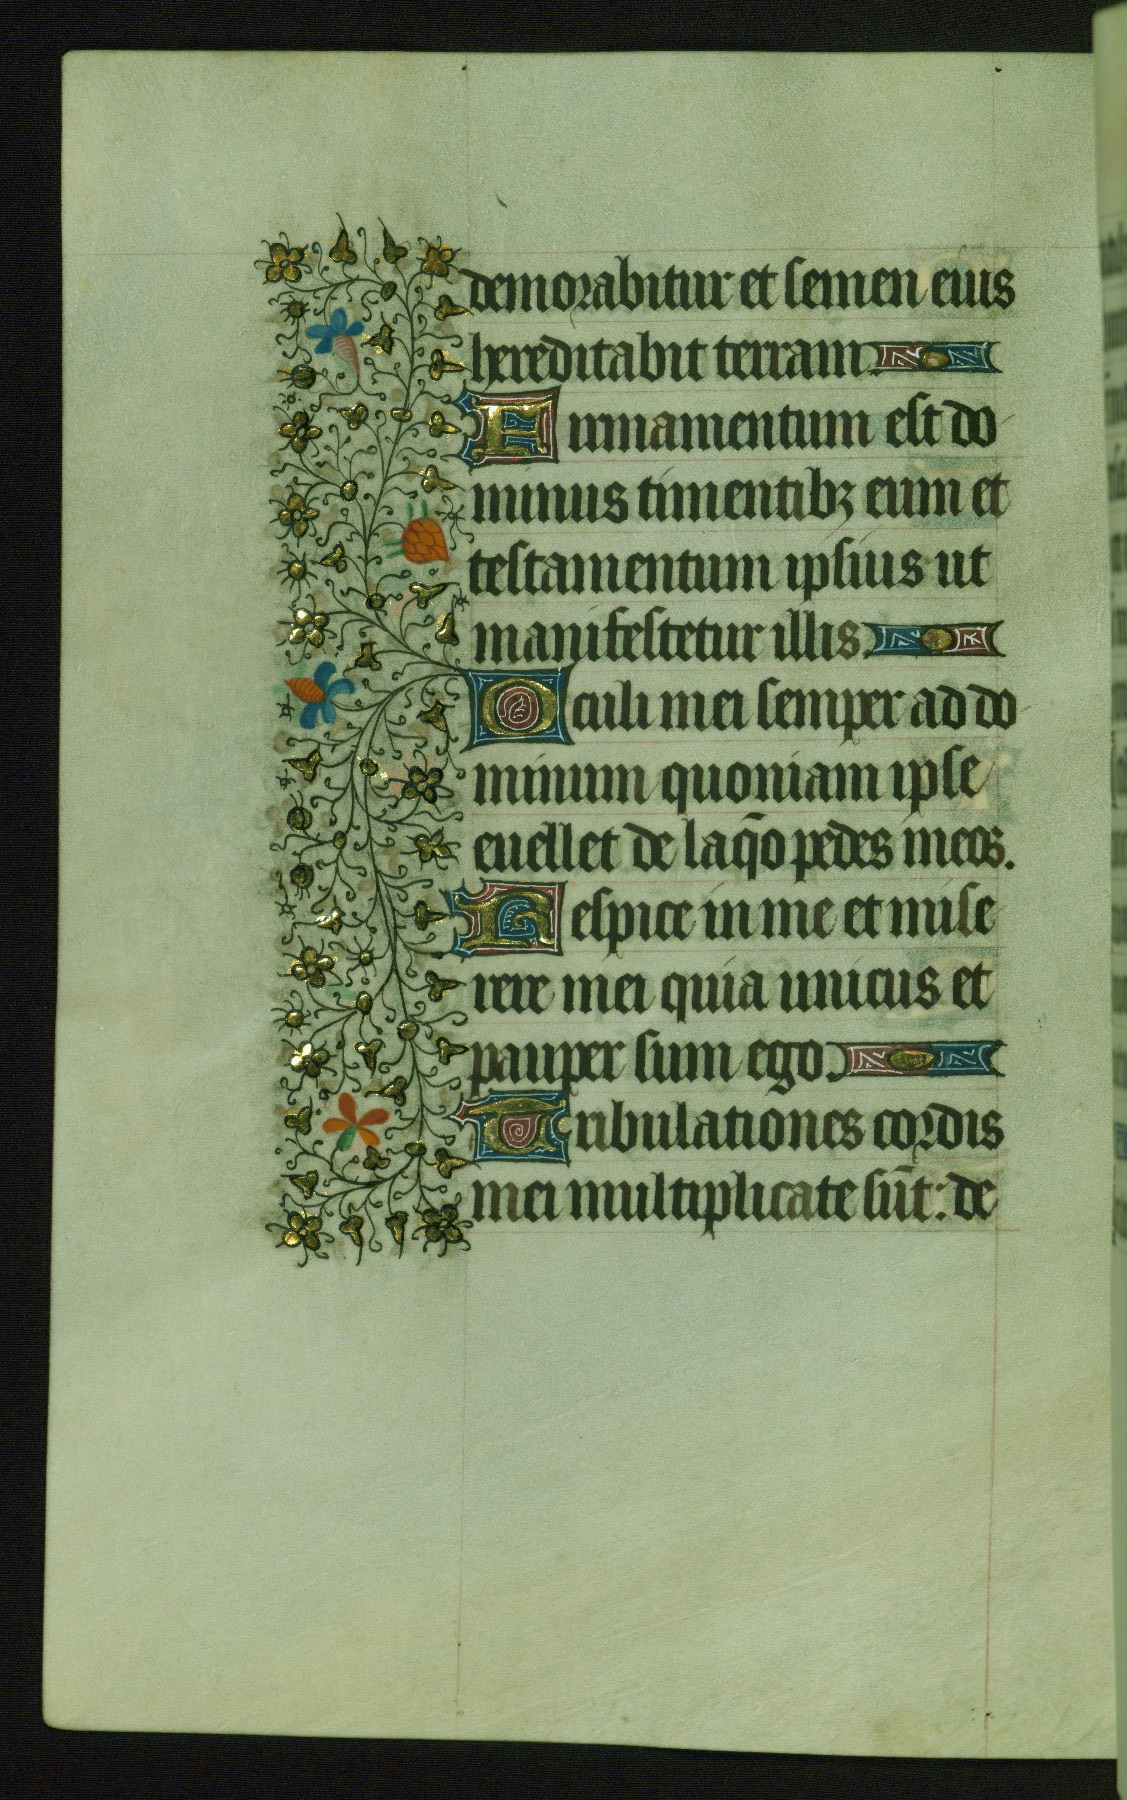 demorabitur et semen eius
hereditabit terram.
Firmamentum est do
minus timentibꝫ eum et
testamentum ipsius ut
manifestetur illis.
Oculi mei semper ad do
minum quoniam ipse
euellet de laq̄o pedes meos.
Respice in me et mise
rere mei quia unicus et
pauper sum ego.
Tribulationes cordis
mei multiplicate sūt: de